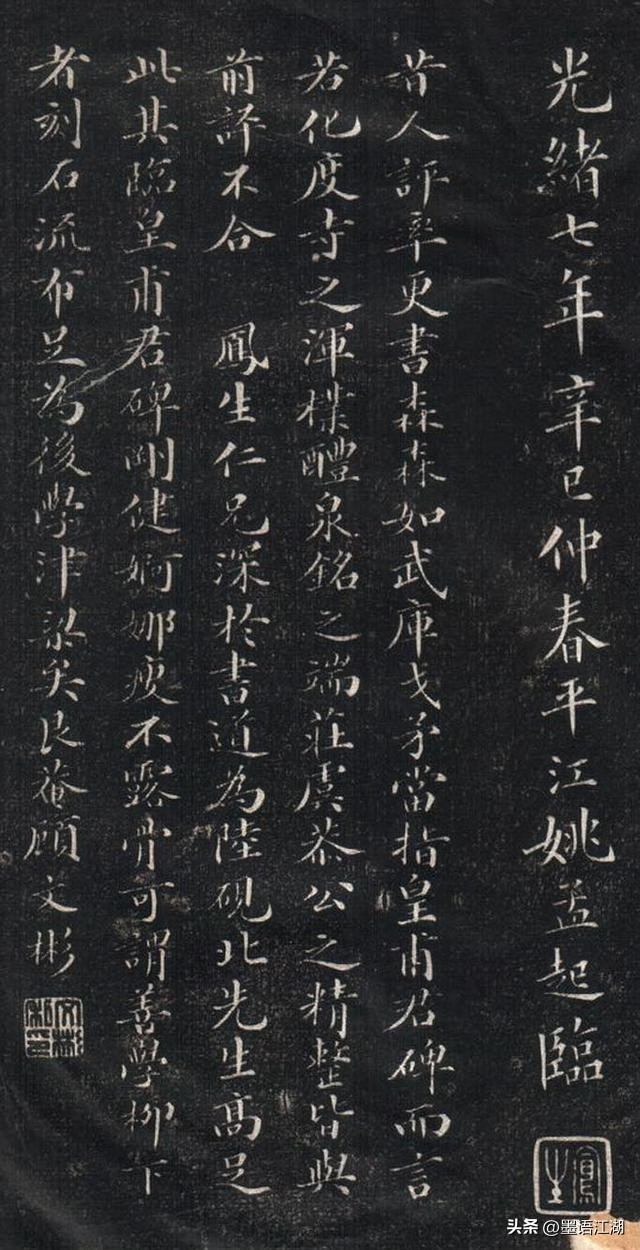 光緒七年辛巳仲春平江姚孟起臨
鳳生
昔人評率更書森森如武庫戈矛當指皇甫君碑而言
若化度寺之渾樸醴泉銘之端莊虞恭公之精整皆與
前評不合　鳳生仁兄深於書道為陸硯北先生高足
此其臨皇甫君碑剛健婀娜瘦不露骨可謂善學柳下
者刻石流布足為後學津梁矣艮菴顧文彬
文彬私印
头条 @墨语江湖